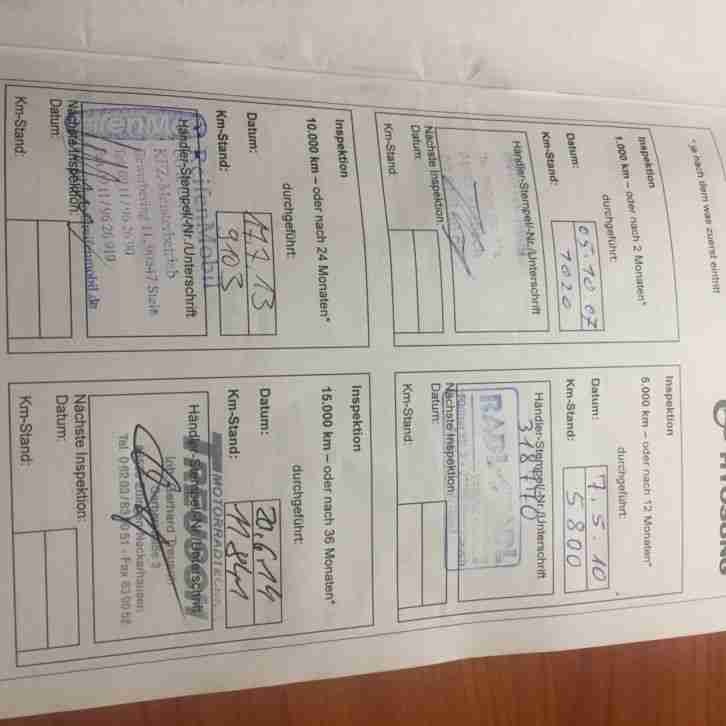 HYOSUNG
* je nach dem was zuerst eintritt
Inspektion
1.000 km – oder nach 2 Monaten*
durchgeführt:
Datum: 05.10.07
Km-Stand: 1020
Händler-Stempel/-Nr./Unterschrift
Nächste Inspektion
Datum:
Km-Stand:
Inspektion
5.000 km – oder nach 12 Monaten*
durchgeführt:
Datum: 7.5.10
Km-Stand: 5800
Händler-Stempel/-Nr./Unterschrift
Nächste Inspektion:
Datum:
Km-Stand:
Inspektion
10.000 km – oder nach 24 Monaten*
durchgeführt:
Datum: 17.7.13
Km-Stand: 9103
Händler-Stempel/-Nr./Unterschrift
ReifenMobil
KFZ-Meisterbetrieb
11, 90547 Stein
Nächste Inspektion:
Datum:
Km-Stand:
Inspektion
15.000 km – oder nach 36 Monaten*
durchgeführt:
Datum: 20.6.14
Km-Stand: 11841
Händler-Stempel/-Nr./Unterschrift
MOTORRADTECHNIK
Neckarhausen
Nächste Inspektion:
Datum:
Km-Stand: